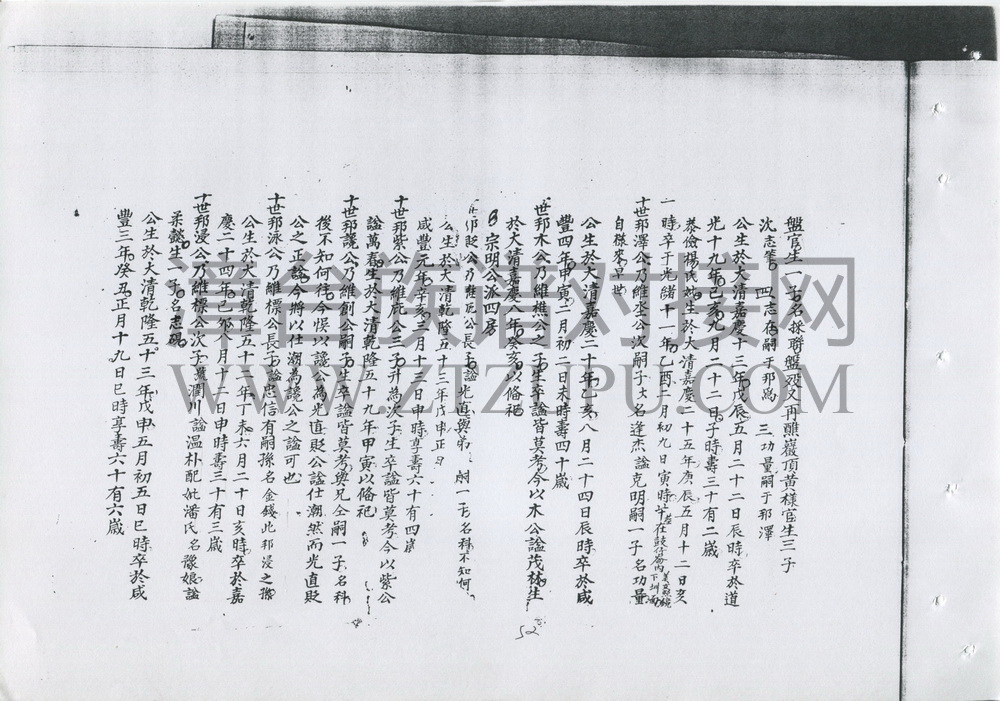 盤官生一子名採聯盤歿又再醮嚴頂黃樣官生三子
沈志肇 四志存嗣于邦為 三功量嗣于邢澤
公生於大清嘉慶十三年戊辰五月二十二日辰時卒於道
光十九年己亥九月二十二日子時壽三十有二歲
恭儉楊氏妣生於大清嘉慶二十五年庚辰五月十二日亥
時卒于光緒十一年乙酉二月初九日寅時
十世邦澤公乃維 公次嗣子大名逢杰謚克明嗣一子名功量
自 來早世
公生於大清嘉慶二十年乙亥八月二十四日辰時卒於咸
豐四年甲寅二月初二日未時壽四十歲
世邦木公乃維樵公之子生卒謚皆莫考今以木公謚茂林生
於大清嘉慶八年癸亥以脩祀
宗明公派四房
邦貶公乃維 公長子謚光直與弟 嗣一子名科不知何
公生於大清乾隆五十三年戊申正
咸豐元年辛亥三月十三日申時享壽六十有四歲
十世邦紫公乃維庇公三子升為次子生卒謚皆莫考今以紫公
謚萬春生於大清乾隆五十九年甲寅以脩祀
十世邦讒公乃維創公嗣子生卒謚皆莫考與兄仝嗣一子名科
後不知何往今悮以讒公為光直貶公謚仕潮然而光直貶
公之正謚今將以仕潮為讒公之謚可也
十世邦泳公乃維標公長子謚忠信有嗣孫名金錢此邦浸之孫
公生於大清乾隆五十二年丁未六月二十日亥時卒於嘉
慶二十四年己卯八月十二日申時壽三十有三歲
十世邦浸公乃維標公次子 潤川謚温朴配妣潘氏名豫娘謚
柔懿生一子名志硯
公生於大清乾隆五十三年戊申五月初五日巳時卒於咸
豐三年癸丑正月十九日巳時享壽六十有六歲
52
淳台族譜對接網
WWW.ZTZUPU.COM